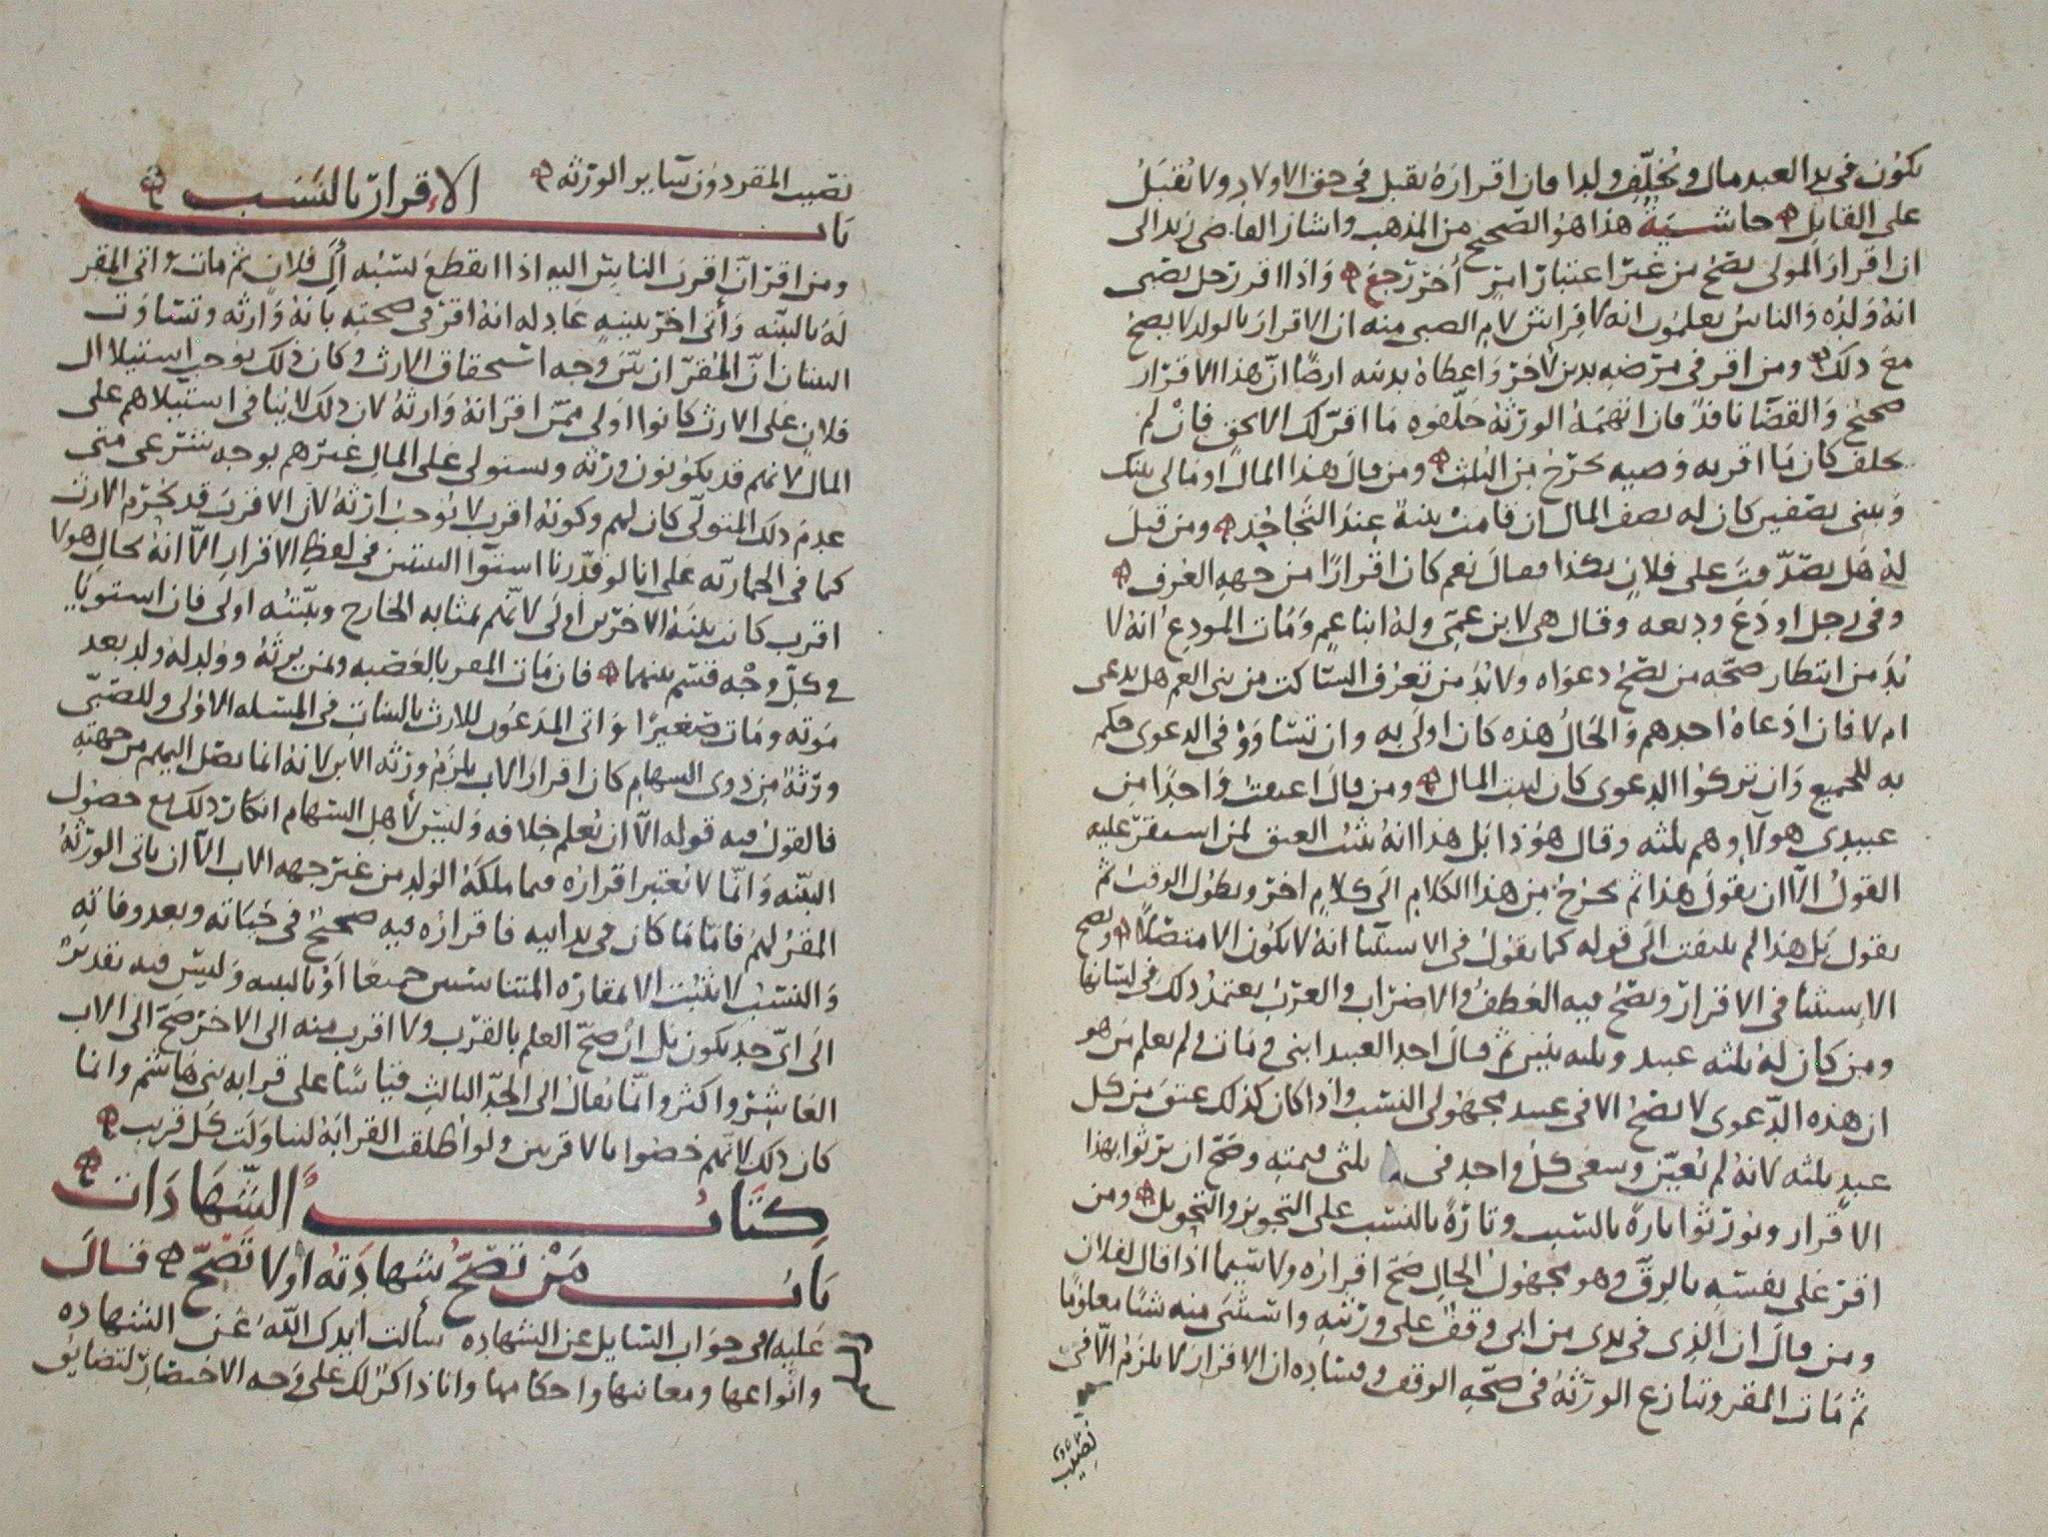 يكون في يد العبد مال ويخلف ولدا فان اقراره يقبل في حق الاولاد ولا يقبل
على القايل حاشية هذا هو الصحيح من المذهب واشار القاضي زيد الى
ان اقرار المولى يصح من غير اعتبار امر أخر رجع واذا اقر رجل بصبي
انه ولده والناس يعلمون انه لا فراش لام الصبي منه ان الاقرار بالولد لا يصح
مع ذلك ومن اقر في مرضه بدين لاخر واعطاه بدينه ارضا ان هذا الاقرار
صحيح والقضا نافذ فان اتهمه الورثة حلفوه ما اقر لك الا بحق فان لم
يحلف كان ما اقر به وصيه يخرج من الثلث ومن قال هذا المال او مالي بينك
وبيني نصفين كان له نصف المال ان قامت بينة عند التجاحد ومن قيل
له هل تصدقت على فلان بكذا فقال نعم كان اقرارا من جهه العرف
وفي رجل اودع وديعه وقال هي لابن عمي وله ابنا عم ومات المودع انه لا
بد من انتظار صحه من تصح دعواه ولا بد من تعرف الساكت من بني العم هل يدعي
ام لا فان ادعاه احدهم والحال هذه كان اولى به وان تساووا في الدعوى حكم
به للجميع وان تركوا الدعوى كان لبيت المال ومن قال اعتقت واحدا من
عبيدي هولاء وهم ثلثه وقال هو ذا بل هذا انه يثبت العتق لمن استقر عليه
القول الا ان يقول هذا ثم يخرج من هذا الكلام الى كلام اخر ويطول الوقت ثم
يقول بل هذا لم يلتفت الى قوله كما يقول في الاستثنا انه لا يكون الا متصلا ويصح
الاستثنا في الاقرار ويصح فيه العطف والاضراب والعرب يعتمد ذلك في لسانها
ومن كان له ثلثه عبيد وثلثه بنين ثم قال احد العبيد ابني ومات ولم يعلم من هو
ان هذه الدعوى لا تصح الا في عبيد مجهولي النسب واذا كان كذلك عتق من كل
عبد ثلثه لانه لم يعين وسعى كل واحد في ثلثي قيمته وصح ان يرثوا بهذا
الاقرار ويورثوا تارة بالسبب وتارة بالنسب على التجويز والتحويل ومن
اقر على نفسه بالرق وهو مجهول الحال صح اقراره ولا سيما اذا قال لفلان
ومن قال ان الذي في يدي من ابي وقف على ورثته واستثنى منه شيا معلوما
ثم مات المقر وتنازع الورثة في صحه الوقف وفساده ان الاقرار لا يلزم الا في
نصيب
نصيب المقر دون ساير الورثه
باب الاقرار بالنسب
ومن اقر ان اقرب الناس اليه اذا انقطع نسبه آل فلان ثم مات واتى المقر
له بالبينه وأتى اخر ببينه عادله انه اقر في صحته بانه وارثه وتساوت
البينتان ان المقر ان بين وجه استحقاق الارث وكان ذلك يوجب استيلا آل
فلان على الارث كانوا اولى ممن اقر انه وارثه لان ذلك لا ينافي استيلاهم على
المال لانهم قد يكونون ورثه ويستولي على المال غيرهم بوجه شرعي متى
عدم ذلك المتولي كان لهم وكونه اقرب لا يوجب ارثه لان الاقرب قد يحرم الارث
كما في الحماريه على انا لو قدرنا استوا البينتين في لفظ الاقرار الا انه بحال هو لا
اقرب كانت بينة الاخرين اولى لانهم بمثابه الخارج وبينته اولى فان استويا
في كل وجه قسم بينهما فان مات المقر بالعصبه ولمن يورثه وولد له ولد بعد
موته ومات صغيرا واتى المدعون للارث بالبينات في المسله الاولى وللصبي
ورثة من ذوي السهام كان اقرار الاب يلزم ورثه الابن لانه انما يصل اليهم من جهته
فالقول فيه قوله الا ان يعلم خلافه وليس لاهل السهام انكار ذلك مع حصول
البينه وانما لا يعتبر اقراره فيما ملكه الولد من غير جهه الاب الا ان ياتي الورثة
المقر لهم فاما ما كان في يد ابيه فاقراره فيه صحيح في حياته وبعد وفاته
والنسب لا يثبت الا بمقاره المتناسبين جميعا أو بالبينه وليس فيه تقدير
الى اي جد يكون بل ان صح العلم بالقرب ولا اقرب منه الى الاخر صح الى الاب
العاشر واكثر وانما يقال الى الجد الثالث قياسا على قرابه بني هاشم وانما
كان ذلك لانهم خصوا بالاقربين ولو أطلقت القرابة لتناولت كل قريب
كتاب الشهادات
باب من تصح شهادته أو لا تصح قال
عليه في جواب السايل عن الشهاده سألت ايدك الله عن الشهاده
وانواعها ومعانيها واحكامها وانا ذاكر لك على وجه الاختصار لتضايق